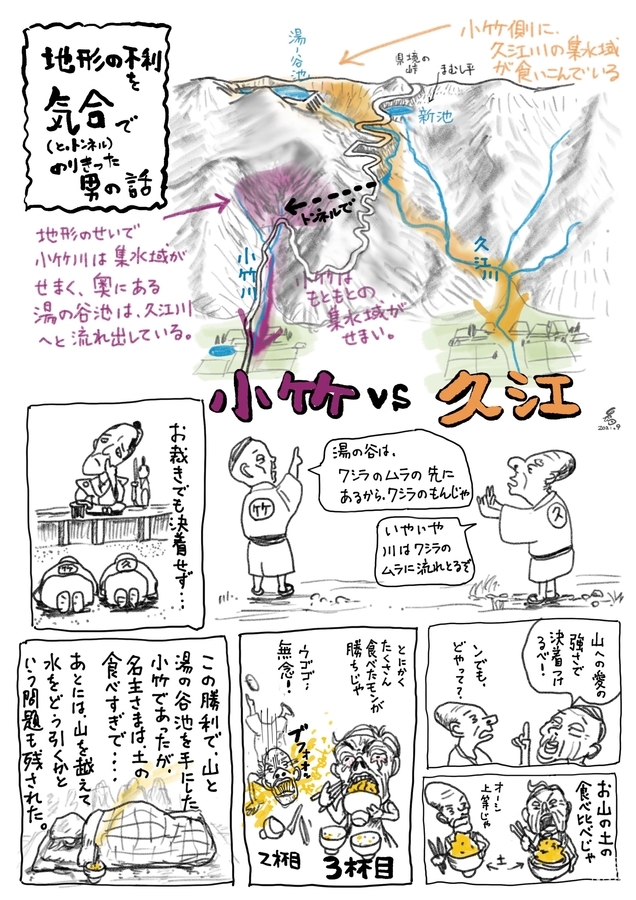 地形の不利
を
気合で
(とトンネル)
のりきった
男の話
小竹側に、
久江川の集水域
が食いこんでいる
湯ノ谷池
県境の
峠
まむし平
新池
トンネルで
地形のせいで
小竹川は集水域が
せまく、奥にある
湯の谷池は、久江川
へと流れ出している。
小竹川
小竹は
もともとの
集水域が
せまい。
久江川
小竹 vs 久江
2021.9
お裁きでも決着せず…
竹
久
竹
湯の谷は、
ワシラのムラの先に
あるから、ワシラのもんじゃ
いやいや
川はワシラの
ムラに流れとるぞ
久
山への愛の
強さで
決着つけ
るべ!
ンでも、
どやって?
お山の土の
食べ比べじゃ
オーシ
上等じゃ
土
とにかく
たくさん
食べたモンが
勝ちじゃ
ウゴゴ…
無念!
ブフォォ
2杯目
3杯目
この勝利で、山と
湯の谷池を手にした
小竹であったが、
名主さまは土の
食べすぎで・・・
あとには、山を越えて
水をどう引くかと
いう問題も残された。